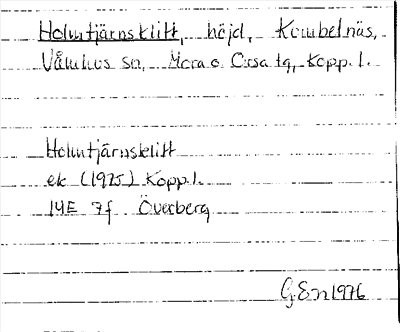 Holmtjärnsklitt, höjd, Kumbelnäs,
Våmhus sn, Mora o. Orsa tg, Kopp. l.
Holmtjärnsklitt
ek (1975) Kopp. l.
14E 7f Överberg
GEn 1976